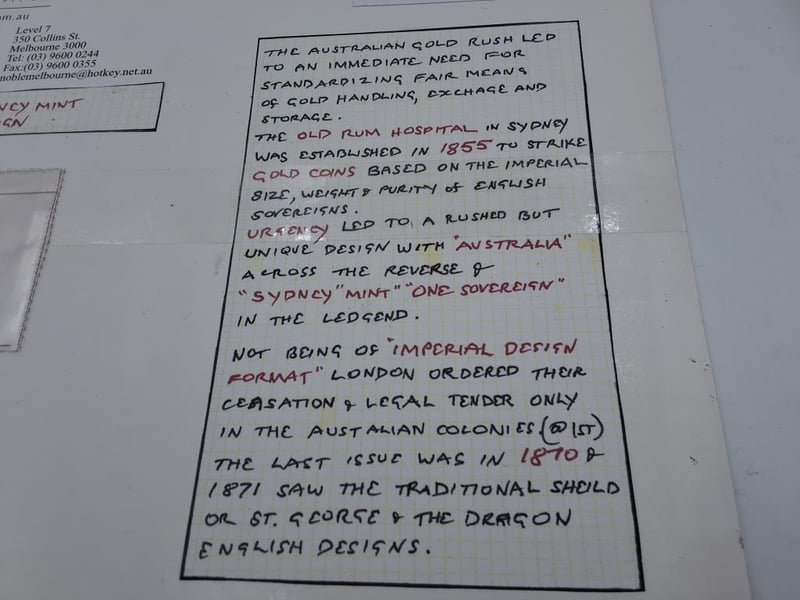 om.au
Level 7
350 Collins St.
Melbourne 3000
Tel: (03) 9600 0244
Fax:(03) 9600 0355
noblemelbourne@hotkey.net.au
NEY MINT
GN
THE AUSTRALIAN GOLD RUSH LED
TO AN IMMEDIATE NEED FOR
STANDARDIZING FAIR MEANS
OF GOLD HANDLING, EXCHAGE AND
STORAGE.
THE OLD RUM HOSPITAL IN SYDNEY
WAS ESTABLISHED IN 1855 TO STRIKE
GOLD COINS BASED ON THE IMPERIAL
SIZE, WEIGHT & PURITY of ENGLISH
SOVEREIGNS.
URGENCY LED TO A RUSHED BUT
UNIQUE DESIGN WITH "AUSTRALIA"
ACROSS THE REVERSE &
"SYDNEY" MINT" "ONE SOVEREIGN"
IN THE LEDGEND.
NOT BEING OF "IMPERIAL DESIGN
FORMAT" LONDON ORDERED THEIR
CEASATION & LEGAL TENDER ONLY
IN THE AUSTALIAN COLONIES.(@ 1ST)
THE LAST ISSUE WAS IN 1870 &
1871 SAW THE TRADITIONAL SHEILD
OR ST. GEORGE & THE DRAGON
ENGLISH DESIGNS.